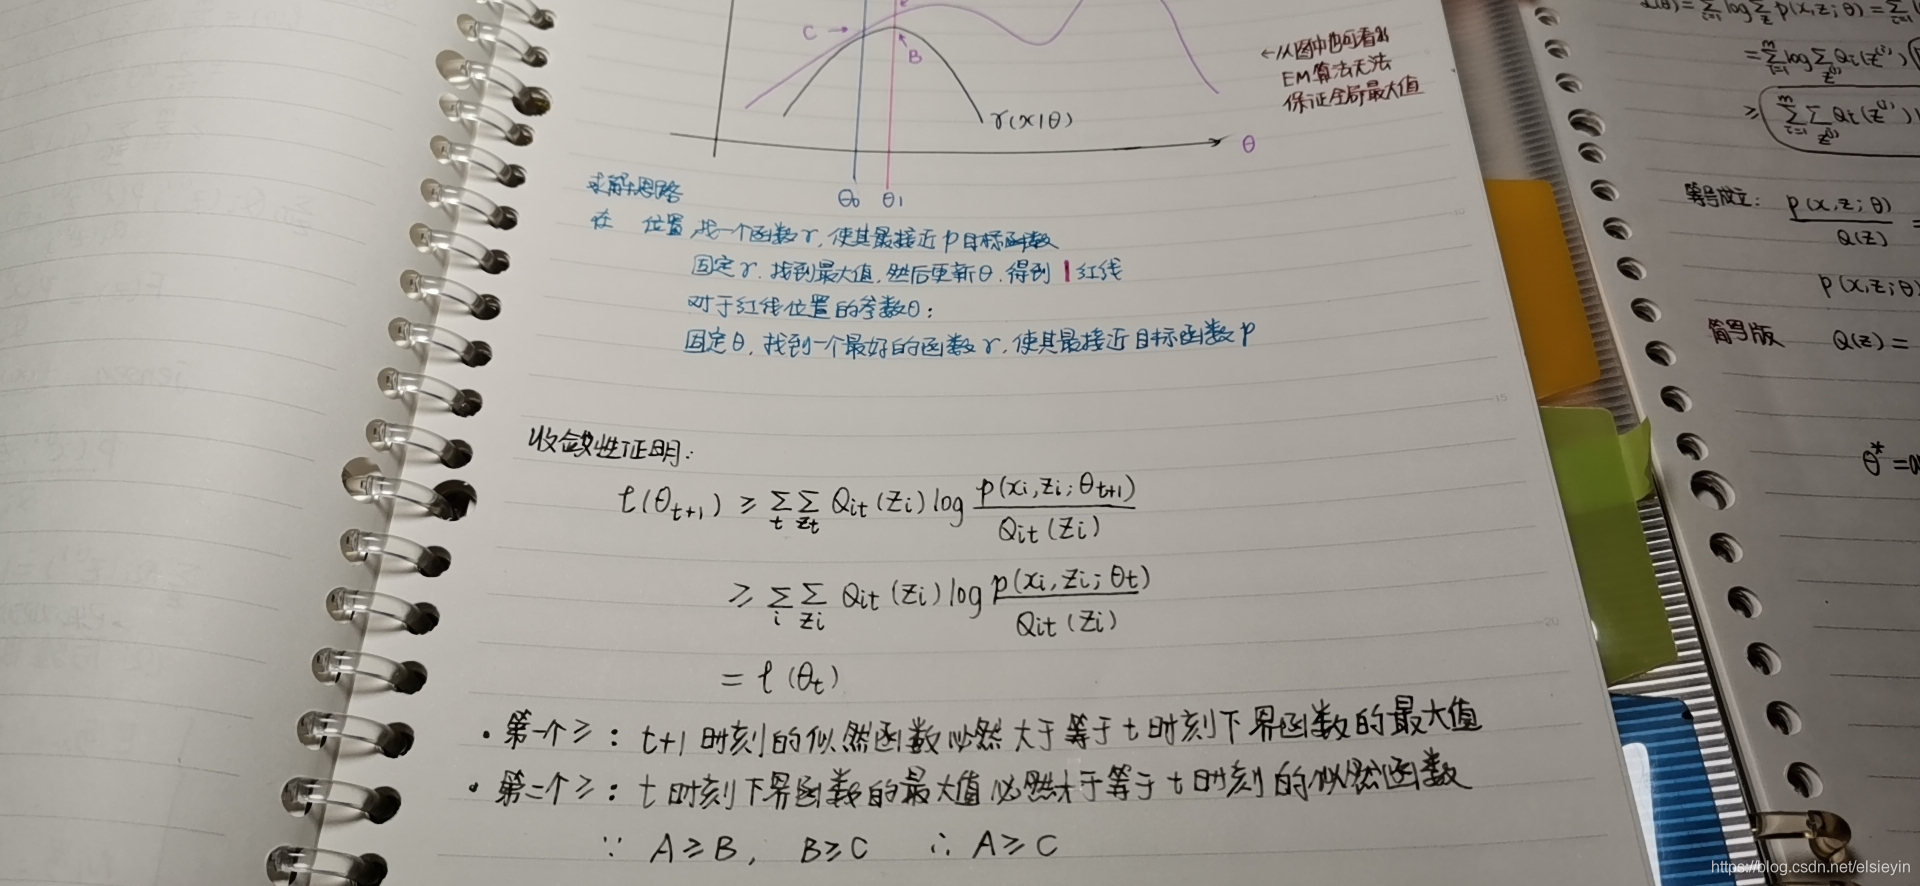 C →
B
γ(x|θ)
θ
θ₀ θ₁
←从图中也可看出
EM算法无法
保证全局最大值
求解思路
在 位置,找一个函数γ,使其最接近p目标函数
固定γ,找到最大值,然后更新θ,得到 | 红线
对于红线位置的参数θ:
固定θ,找到一个最好的函数γ,使其最接近目标函数p
收敛性证明:
ℓ(θt+1) ≥ ∑t ∑zt Qit(zi) log p(xi,zi;θt+1) / Qit(zi)
≥ ∑i ∑zi Qit(zi) log p(xi,zi;θt) / Qit(zi)
= ℓ(θt)
· 第一个≥: t+1时刻的似然函数必然大于等于t时刻下界函数的最大值
· 第二个≥: t时刻下界函数的最大值必然大于等于t时刻的似然函数
∵ A≥B, B≥C ∴ A≥C
∑ log ∑z p(x,z;θ) =
= ∑ log ∑ Qi(z⁽ⁱ⁾)
≥ ∑ ∑ Qi(z⁽ⁱ⁾)
等号成立: p(x,z;θ) / Q(z) =
p(x,z;θ)
简写版 Q(z) =
θ* =
https://blog.csdn.net/elsieyin